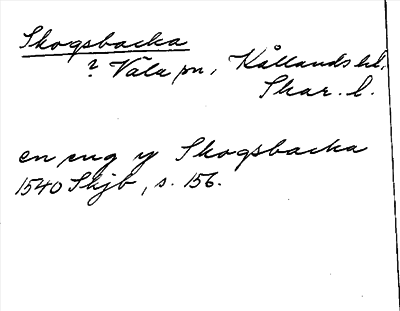 Skogsbacka
? Väla sn, Kållands hd,
Skar. l.
en eng y Skogsbacka
1540 Skjb, s. 156.